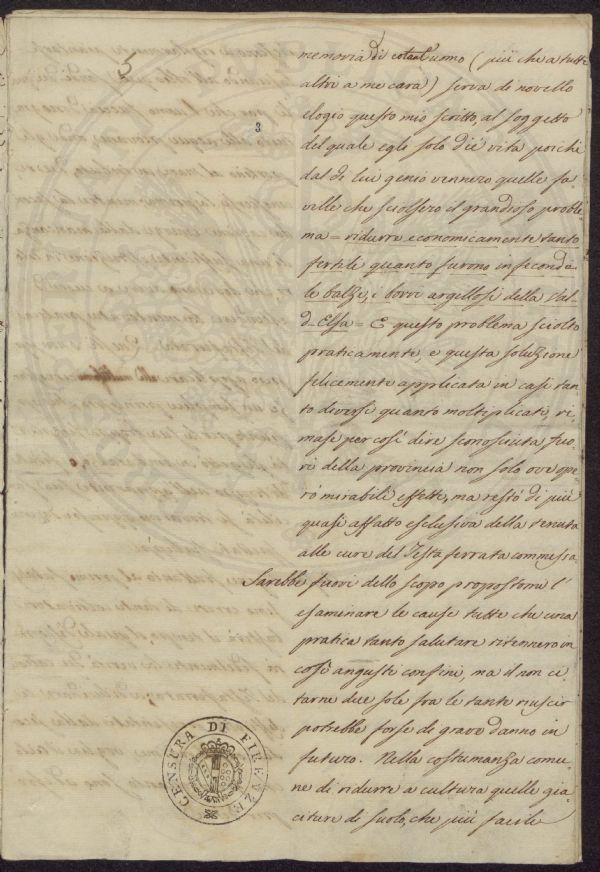 5
3
memoria di cotant'uomo (più che a tutti
altri a me cara) serva di novello
elogio questo mio scritto, al soggetto
del quale egli solo diè vita poichè
dal di lui genio vennero quelle fa-
ville che sciolsero il grandioso proble-
ma = ridurre economicamente tanto
fertili quanto furono infeconde
le balze, i borri argillosi della Val-
d-Elsa = E questo problema sciolto
praticamente, e questa soluzione
felicemente applicata in casi tan-
to diversi quanto moltiplicati, ri-
mase per così dire sconosciuta fuo-
ri della provincia non solo ove ope-
rò mirabili effetti, ma restò di più
quasi affatto esclusiva della tenuta
alle cure del Testaferrata commissa.
Sarebbe fuori dello scopo propostomi l'
esaminare le cause tutte che una
pratica tanto salutare ritennero in
così angusti confini, ma il non ci-
tarne due sole, fra le tante riuscir
potrebbe forse di grave danno in
futuro. Nella costumanza comu-
ne di ridurre a cultura quelle gia-
citure di suolo, che più facile
CENSURA DI FIRENZE